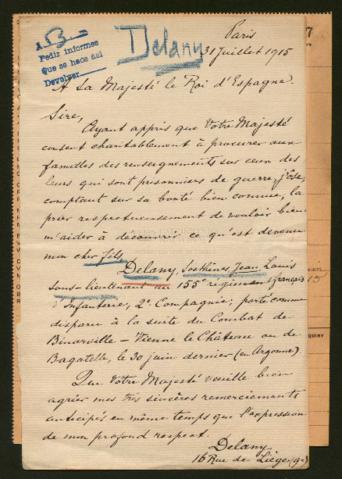 A 53
Pedir informes
que se hace así
Devolver
Delany
Paris
31 Juillet 1915
A Sa Majesté le Roi d'Espagne.
Sire,
Ayant appris que Votre Majesté
consent charitablement à procurer aux
familles des renseignements sur ceux des
leurs qui sont prisonniers de guerre, j'ose,
comptant sur sa bonté bien connue, la
prier respectueusement de vouloir bien
m'aider à découvrir ce qu'est devenu
mon cher fils,
Delany, Sosthènes Jean Louis
sous-lieutenant au 155e régiment (français)
d'Infanterie, 2e Compagnie; porté comme
disparu à la suite du Combat de
Binarville - Vienne le Château ou de
Bagatelle, le 30 juin dernier (en Argonne).
Que Votre Majesté veuille bien
agréer mes très sincères remerciements
anticipés en même temps que l'expression
de mon profond respect.
Delany
16 Rue de Liège (9e)